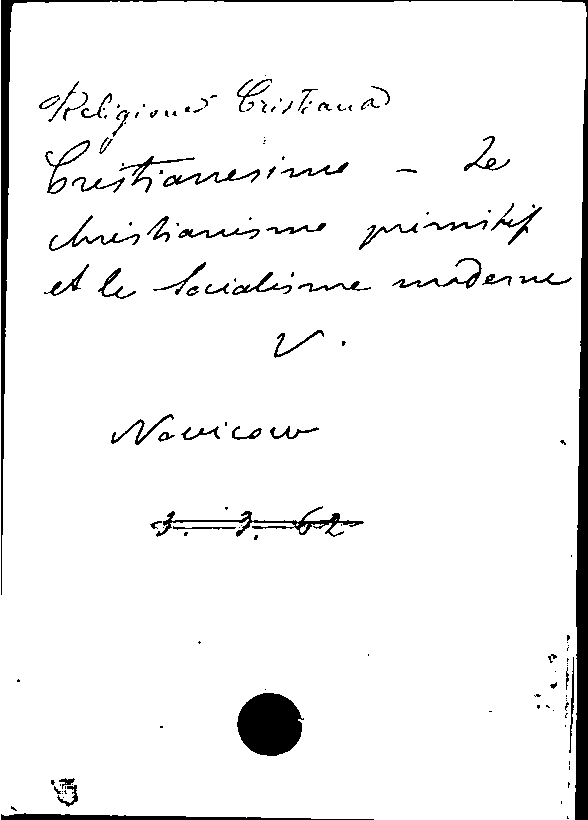 Religione Cristiana
Cristianesimo - Le
christianisme primitif
et le Socialisme moderne
V.
Novicow
3. 3. 62